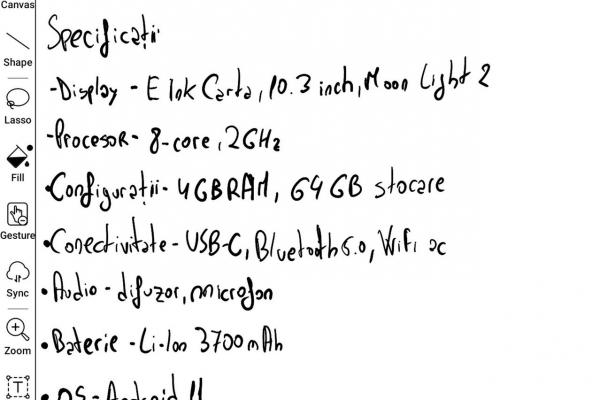 Canvas
Shape
Lasso
Fill
Gesture
Sync
Zoom
T
Specificații
-Display - E Ink Carta, 10.3 inch, Moon Light 2
-Procesor- 8-core, 2GHz
•Configurații- 4GB RAM, 64 GB stocare
•Conectivitate - USB-C, Bluetooth 5.0, WiFi ac
•Audio - difuzor, microfon
•Baterie - Li-Ion 3700 mAh
•OS - Android 11